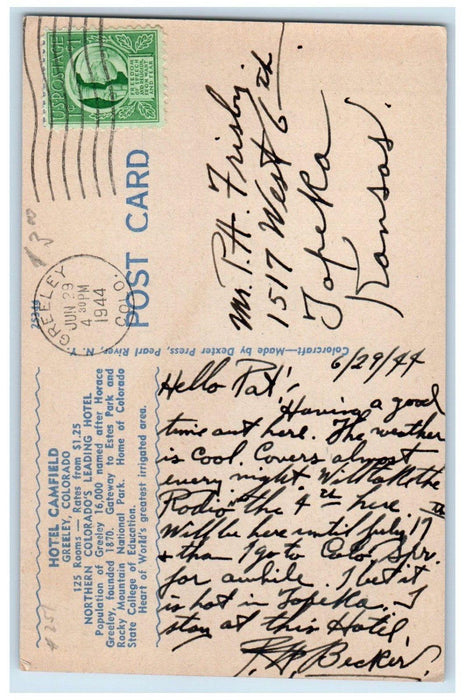 U.S. POSTAGE
FREEDOM
OF SPEECH
AND RELIGION,
FROM WANT
AND FEAR
GREELEY
JUN 29
4 30 PM
1944
COLO.
POST CARD
Mr. P. H. Frisby
1517 West 6th
Topeka
Kansas.
25349
Colorcraft—Made by Dexter Press, Pearl River, N. Y.
HOTEL CAMFIELD
GREELEY, COLORADO
125 Rooms — Rates from $1.25
NORTHERN COLORADO'S LEADING HOTEL
Population of Greeley 16,000 named after Horace
Greeley, founded 1870. Gateway to Estes Park and
Rocky Mountain National Park. Home of Colorado
State College of Education.
Heart of World's greatest irrigated area.
6/29/44
Hello Pat',
Having a good
time out here. The weather
is cool. Covers almost
every night. Will take the
Rodio the 4th here
Will be here until July 17th
& than I go to Colo. Spr.
for awhile. I bet it
is hot in Topeka. I
stay at this Hotel
Becker